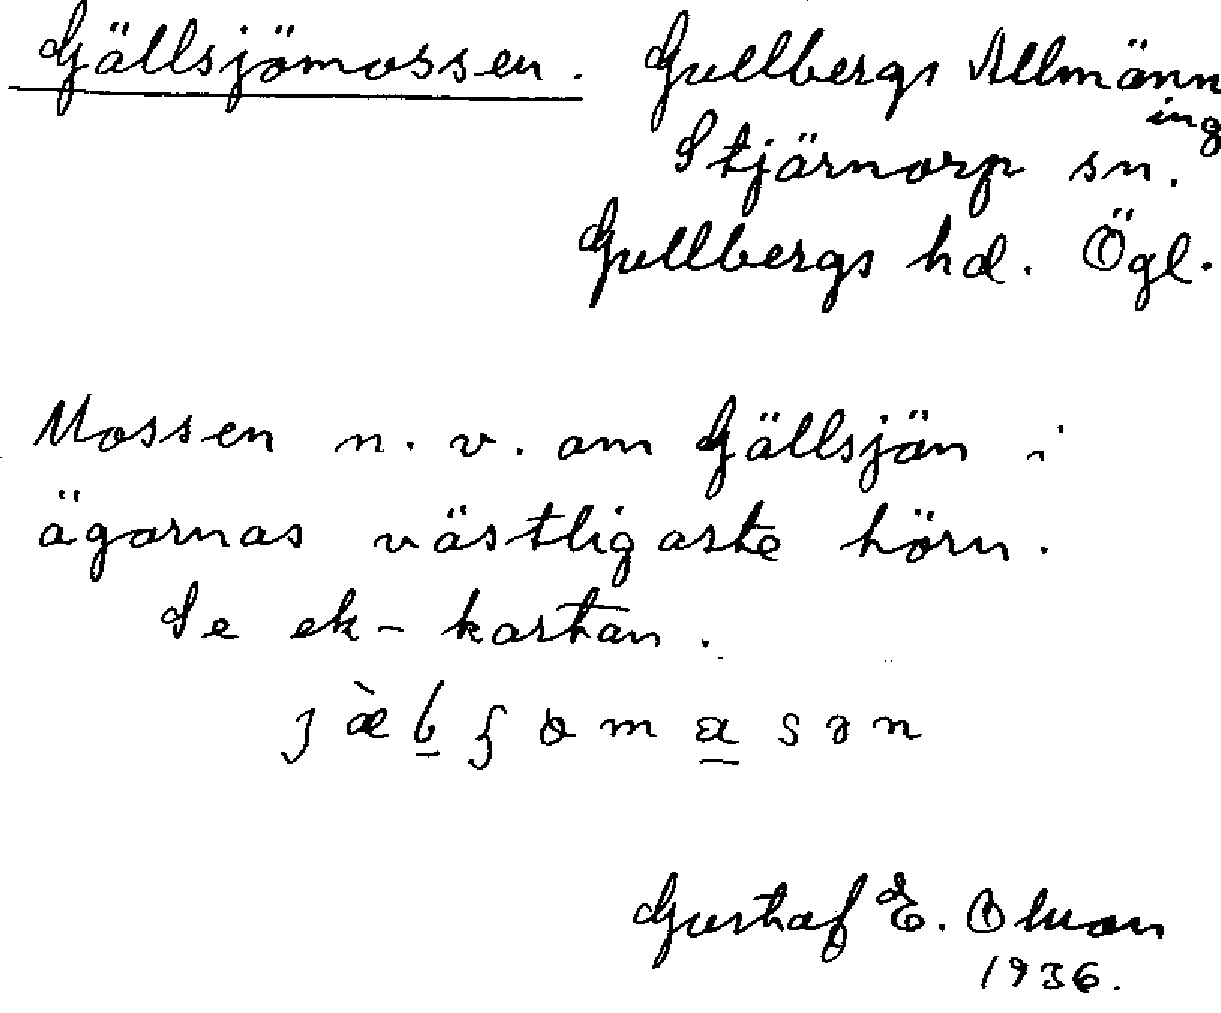 Gällsjömossen. Gullbergs Allmänn
ing
Stjärnorp sn.
Gullbergs hd. Ögl.
Mossen n. v. om Gällsjön i
ägornas västligaste hörn.
Se ek-kartan.
Gustaf E. Olsson
1936.